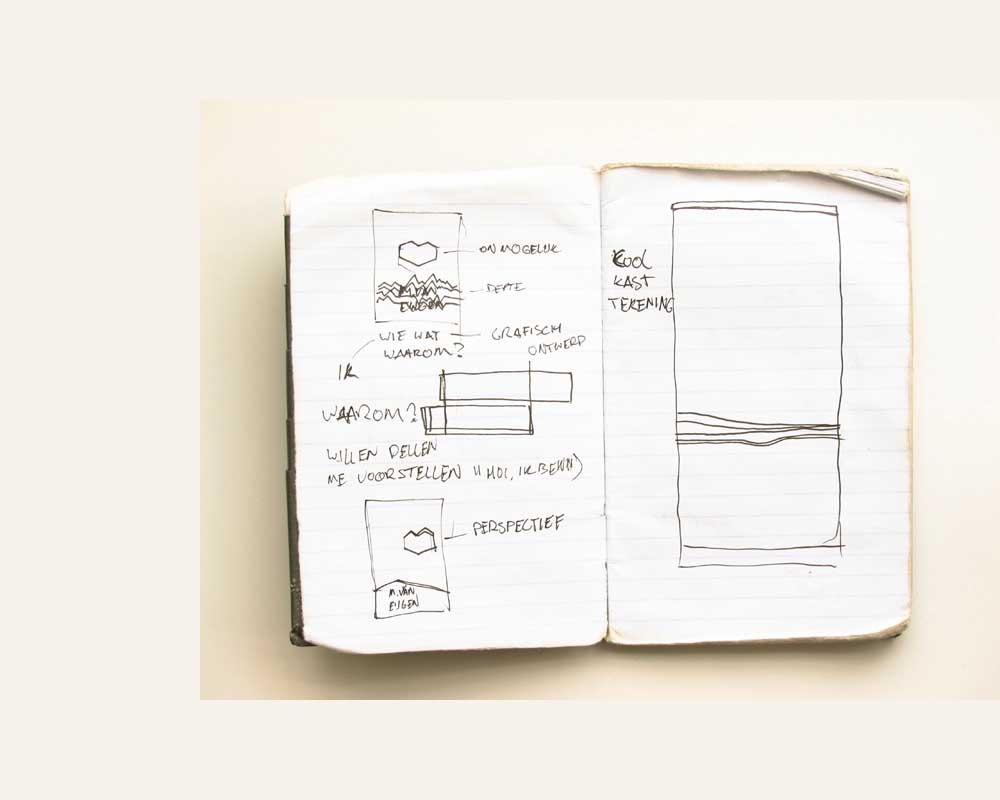 ONMOGELIJK
DEPTE
M. VAN
EIJGEN
WIE WAT
WAAROM?
GRAFISCH
ONTWERP
IK
WAAROM?
WILLEN DELLEN
ME VOORSTELLEN "HOI, IK BEN M)
PERSPECTIEF
M. VAN
EIJGEN
KOOL
KAST
TEKENING